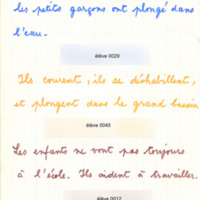 les petits garçons ont plongé dans
l'eau.
élève 0029
Ils courent, ils se déhabillent,
et plongent dans le grand bassin
élève 0045
Les enfants ne vont pas toujours
à l'école. Ils aident à travailler.
élève 0012